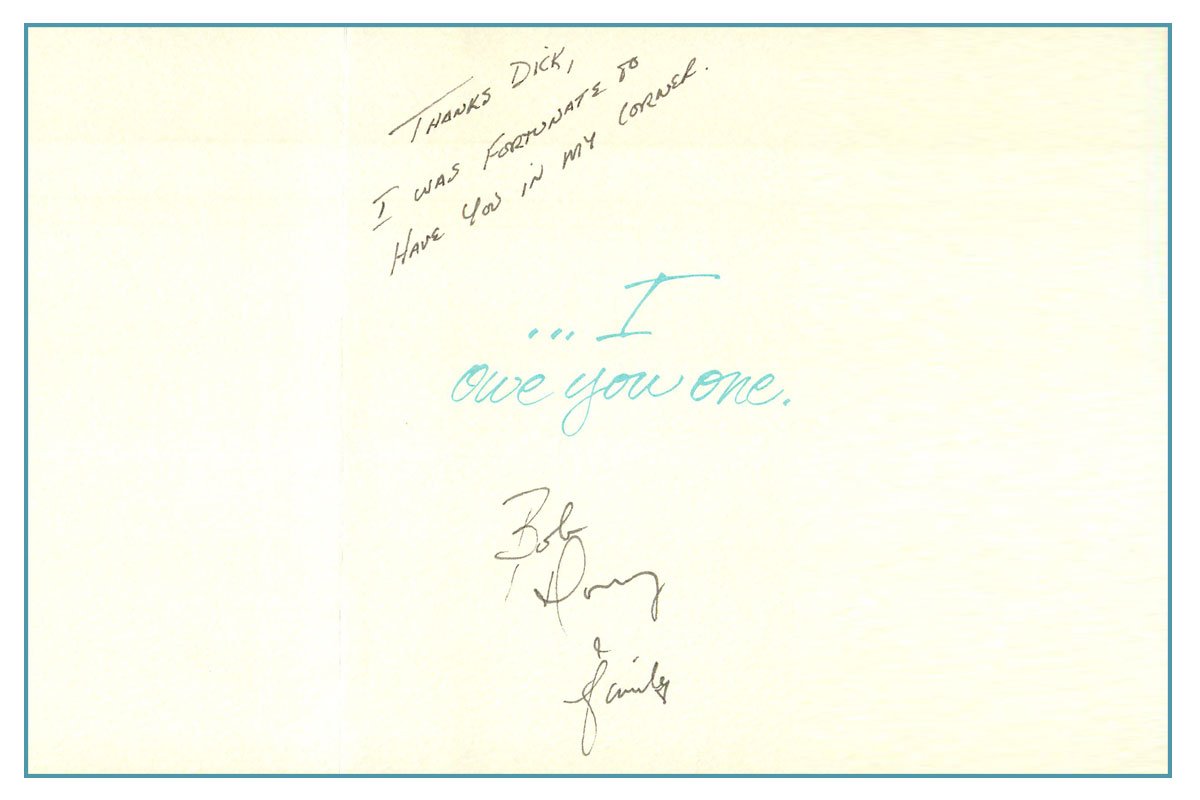 THANKS DICK,
I WAS FORTUNATE TO
HAVE YOU IN MY CORNER.
... I
owe you one.
Bob
& family